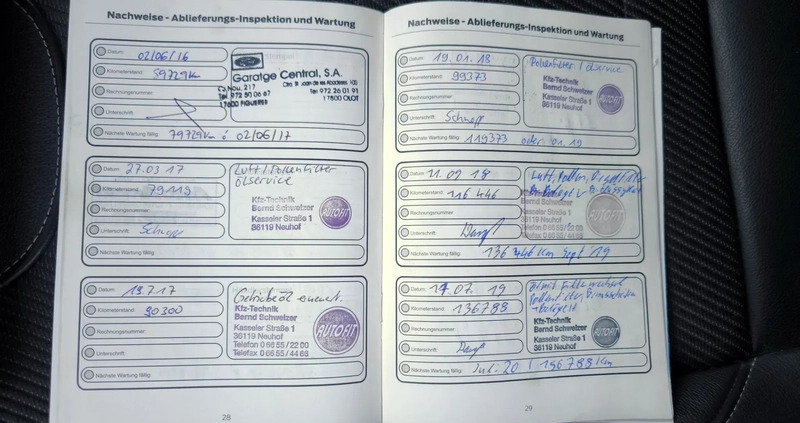 Nachweise - Ablieferungs-Inspektion und Wartung
Datum: 02/06/16
Kilometerstand: 59729 Km
Rechnungsnummer:
Unterschrift:
Nächste Wartung fällig: 79729 Km ó 02/06/17
Garatge Central, S.A.
C/ Nou, 217
Tel 972 50 06 67
17600 FIGUERES
Tel 972 26 01 91
17800 OLOT
Datum: 27.03 17
Kilometerstand: 79119
Rechnungsnummer:
Unterschrift:
Nächste Wartung fällig:
Luft / Pollenfilter
Ölservice
Kfz-Technik
Bernd Schweizer
Kasseler Straße 1
36119 Neuhof
AUTOFIT
Datum: 13.7.17
Kilometerstand: 90300
Rechnungsnummer:
Unterschrift:
Nächste Wartung fällig:
Getriebeöl erneuert.
Kfz-Technik
Bernd Schweizer
Kasseler Straße 1
36119 Neuhof
Telefon 0 66 55/22 00
Telefax 0 66 55/44 68
AUTOFIT
28
Nachweise - Ablieferungs-Inspektion und Wartung
Datum: 19.01.18
Kilometerstand: 99373
Rechnungsnummer:
Unterschrift:
Nächste Wartung fällig: 119373 oder 01.19
Pollenfilter / Ölservice
Kfz-Technik
Bernd Schweizer
Kasseler Straße 1
36119 Neuhof
AUTOFIT
Datum: 11.09 18
Kilometerstand: 116 446
Rechnungsnummer:
Unterschrift:
Nächste Wartung fällig: 136 446 Km Sept 19
Luft, Pollen,
Kfz-Technik
Bernd Schweizer
Kasseler Straße 1
36119 Neuhof
Telefon 0 66 55/22 00
Telefax 0 66 55/44 68
AUTOFIT
Datum: 17.07.19
Kilometerstand: 136788
Rechnungsnummer:
Unterschrift:
Nächste Wartung fällig: Juli 20 / 156788 Km
Öl mit Filterwechsel
Pollenfilter, Bremsscheiben
+ Beläge
Kfz-Technik
Bernd Schweizer
Kasseler Straße 1
36119 Neuhof
AUTOFIT
29